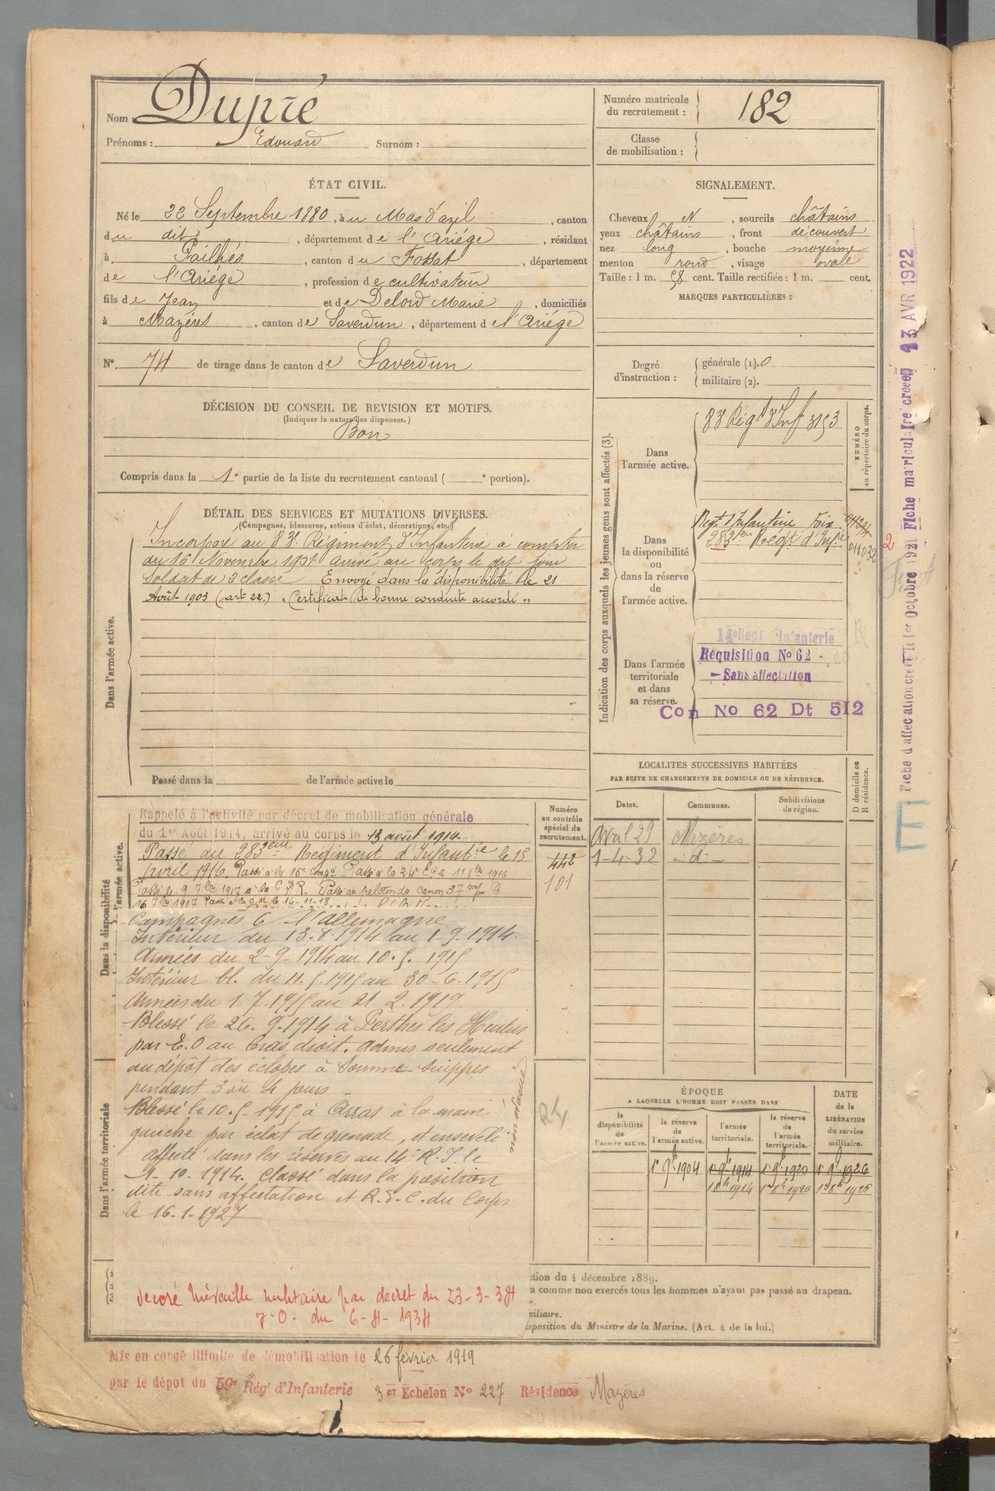 Nom : Dupré
Prénoms : Edouard Surnom :
Numéro matricule du recrutement : 182
Classe de mobilisation :
ÉTAT CIVIL.
Né le 22 Septembre 1880, à u Mas d'azil, canton
du dit, département de l'Ariége, résidant
à Pailhès, canton du Fossat, département
de l'Ariége, profession de cultivateur
fils de Jean et de Delord Marie, domiciliés
à Mazéres, canton de Saverdun, département de l'Ariége
N° 74 de tirage dans le canton de Saverdun
SIGNALEMENT.
Cheveux N, sourcils châtains
yeux châtains, front découvert
nez long, bouche moyenne
menton rond, visage ovale
Taille : 1 m. 58 cent. Taille rectifiée : 1 m. cent.
MARQUES PARTICULIÈRES :
Degré d'instruction : générale (1). 0
militaire (2).
DÉCISION DU CONSEIL DE REVISION ET MOTIFS.
(Indiquer la nature des dispenses.)
Bon
Compris dans la 1e partie de la liste du recrutement cantonal ( e portion).
DÉTAIL DES SERVICES ET MUTATIONS DIVERSES.
(Campagnes, blessures, actions d'éclat, décorations, etc.)
Dans l'armée active.
Incorporé au 83e Régiment d'Infanterie à compter
du 16 Novembre 1901 arrivé au corps le dit jour
soldat de 2e classe Envoyé dans la disponibilité le 21
Août 1903 (art 22.) Certificat de bonne conduite accordé
Passé dans la de l'armée active le
Indication des corps auxquels les jeunes gens sont affectés (3).
Dans l'armée active.
83e Régt d'Inf 3153
NUMÉRO au répertoire du corps.
Dans la disponibilité ou dans la réserve de l'armée active.
Regt d'Infanterie Foix
283ème Regt d'Infie
Dans l'armée territoriale et dans sa réserve.
Régt Infanterie
Réquisition No 62 -
- Sans affectation
Con No 62 Dt 512
Fiche d'affectation créée le 1er Octobre 1921 Fiche matriculaire créée 13 AVR 1922
LOCALITES SUCCESSIVES HABITÉES
PAR SUITE DE CHANGEMENTS DE DOMICILE OU DE RÉSIDENCE.
Dates. Communes. Subdivisions de région. D domicile ou R résidence.
Avril 29 Mazères
1-4-32 -d-
Numéro au contrôle spécial du recrutement.
442
101
24
Dans la disponibilité
l'armée active.
Rappelé à l'activité par décret de mobilisation générale
du 1er Août 1914, arrivé au corps le 13 août 1914
Passé au 283ème Régiment d'Infantie le 15
avril 1916.
Campagnes C l'allemagne
Intérieur du 13.8.1914 au 1-9-1914.
Armées du 2-9-1914 au 10.5.1915
Intérieur bl. du 11.5.1915 au 30-6.1915
Armées du 1.7.1915 au 21.2.1919
Blessé le 26.9.1914 à Perthes les Hurlus
par E.O au bras droit. admis seulement
au dépôt des éclopés à Somme-Suippes
pendant 3 ou 4 jours
Dans l'armée territoriale
Blessé le 10.5.1915 à Arras à la main
gauche par éclat de grenade, et enseveli
affecté dans les réserves au 14e R.I. le
1.10.1914. Classé dans la position
dite sans affectation et R.d.C. du Corps
le 16-1-1927
décoré Médaille militaire par décret du 23-3-34
J-O. du 6-4-1934
ÉPOQUE
A LAQUELLE L'HOMME DOIT PASSER DANS
la disponibilité de l'armée active. la réserve de l'armée active. l'armée territoriale. la réserve de l'armée territoriale.
DATE de la LIBÉRATION du service militaire.
1e 9bre 1904 1e 9e 1914 1e 9e 1920 1e 9e 1926
tion du 4 décembre 1889.
a comme non exercés tous les hommes n'ayant pas passé au drapeau.
viliaire.
sposition du Ministre de la Marine. (Art. 4 de la loi.)
Mis en congé illimité de démobilisation le 26 février 1919
par le dépôt du 59e Régt d'Infanterie 3er Echelon No 227 Résidence Mazères